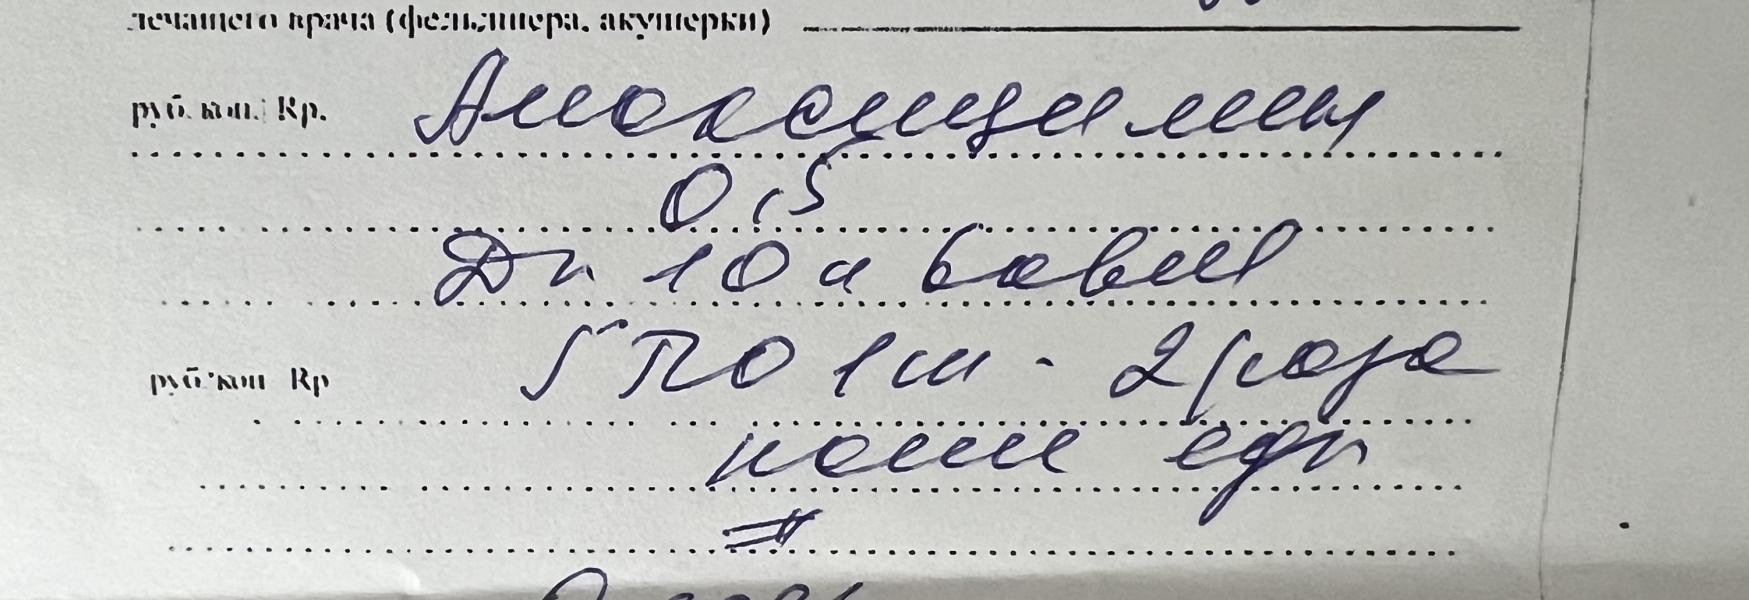 лечащего врача (фельдшера, акушерки)
руб. коп. Rp. Амоксициллин
0,5
10
руб. коп. Rp S по 1 - 2 раза
после еды